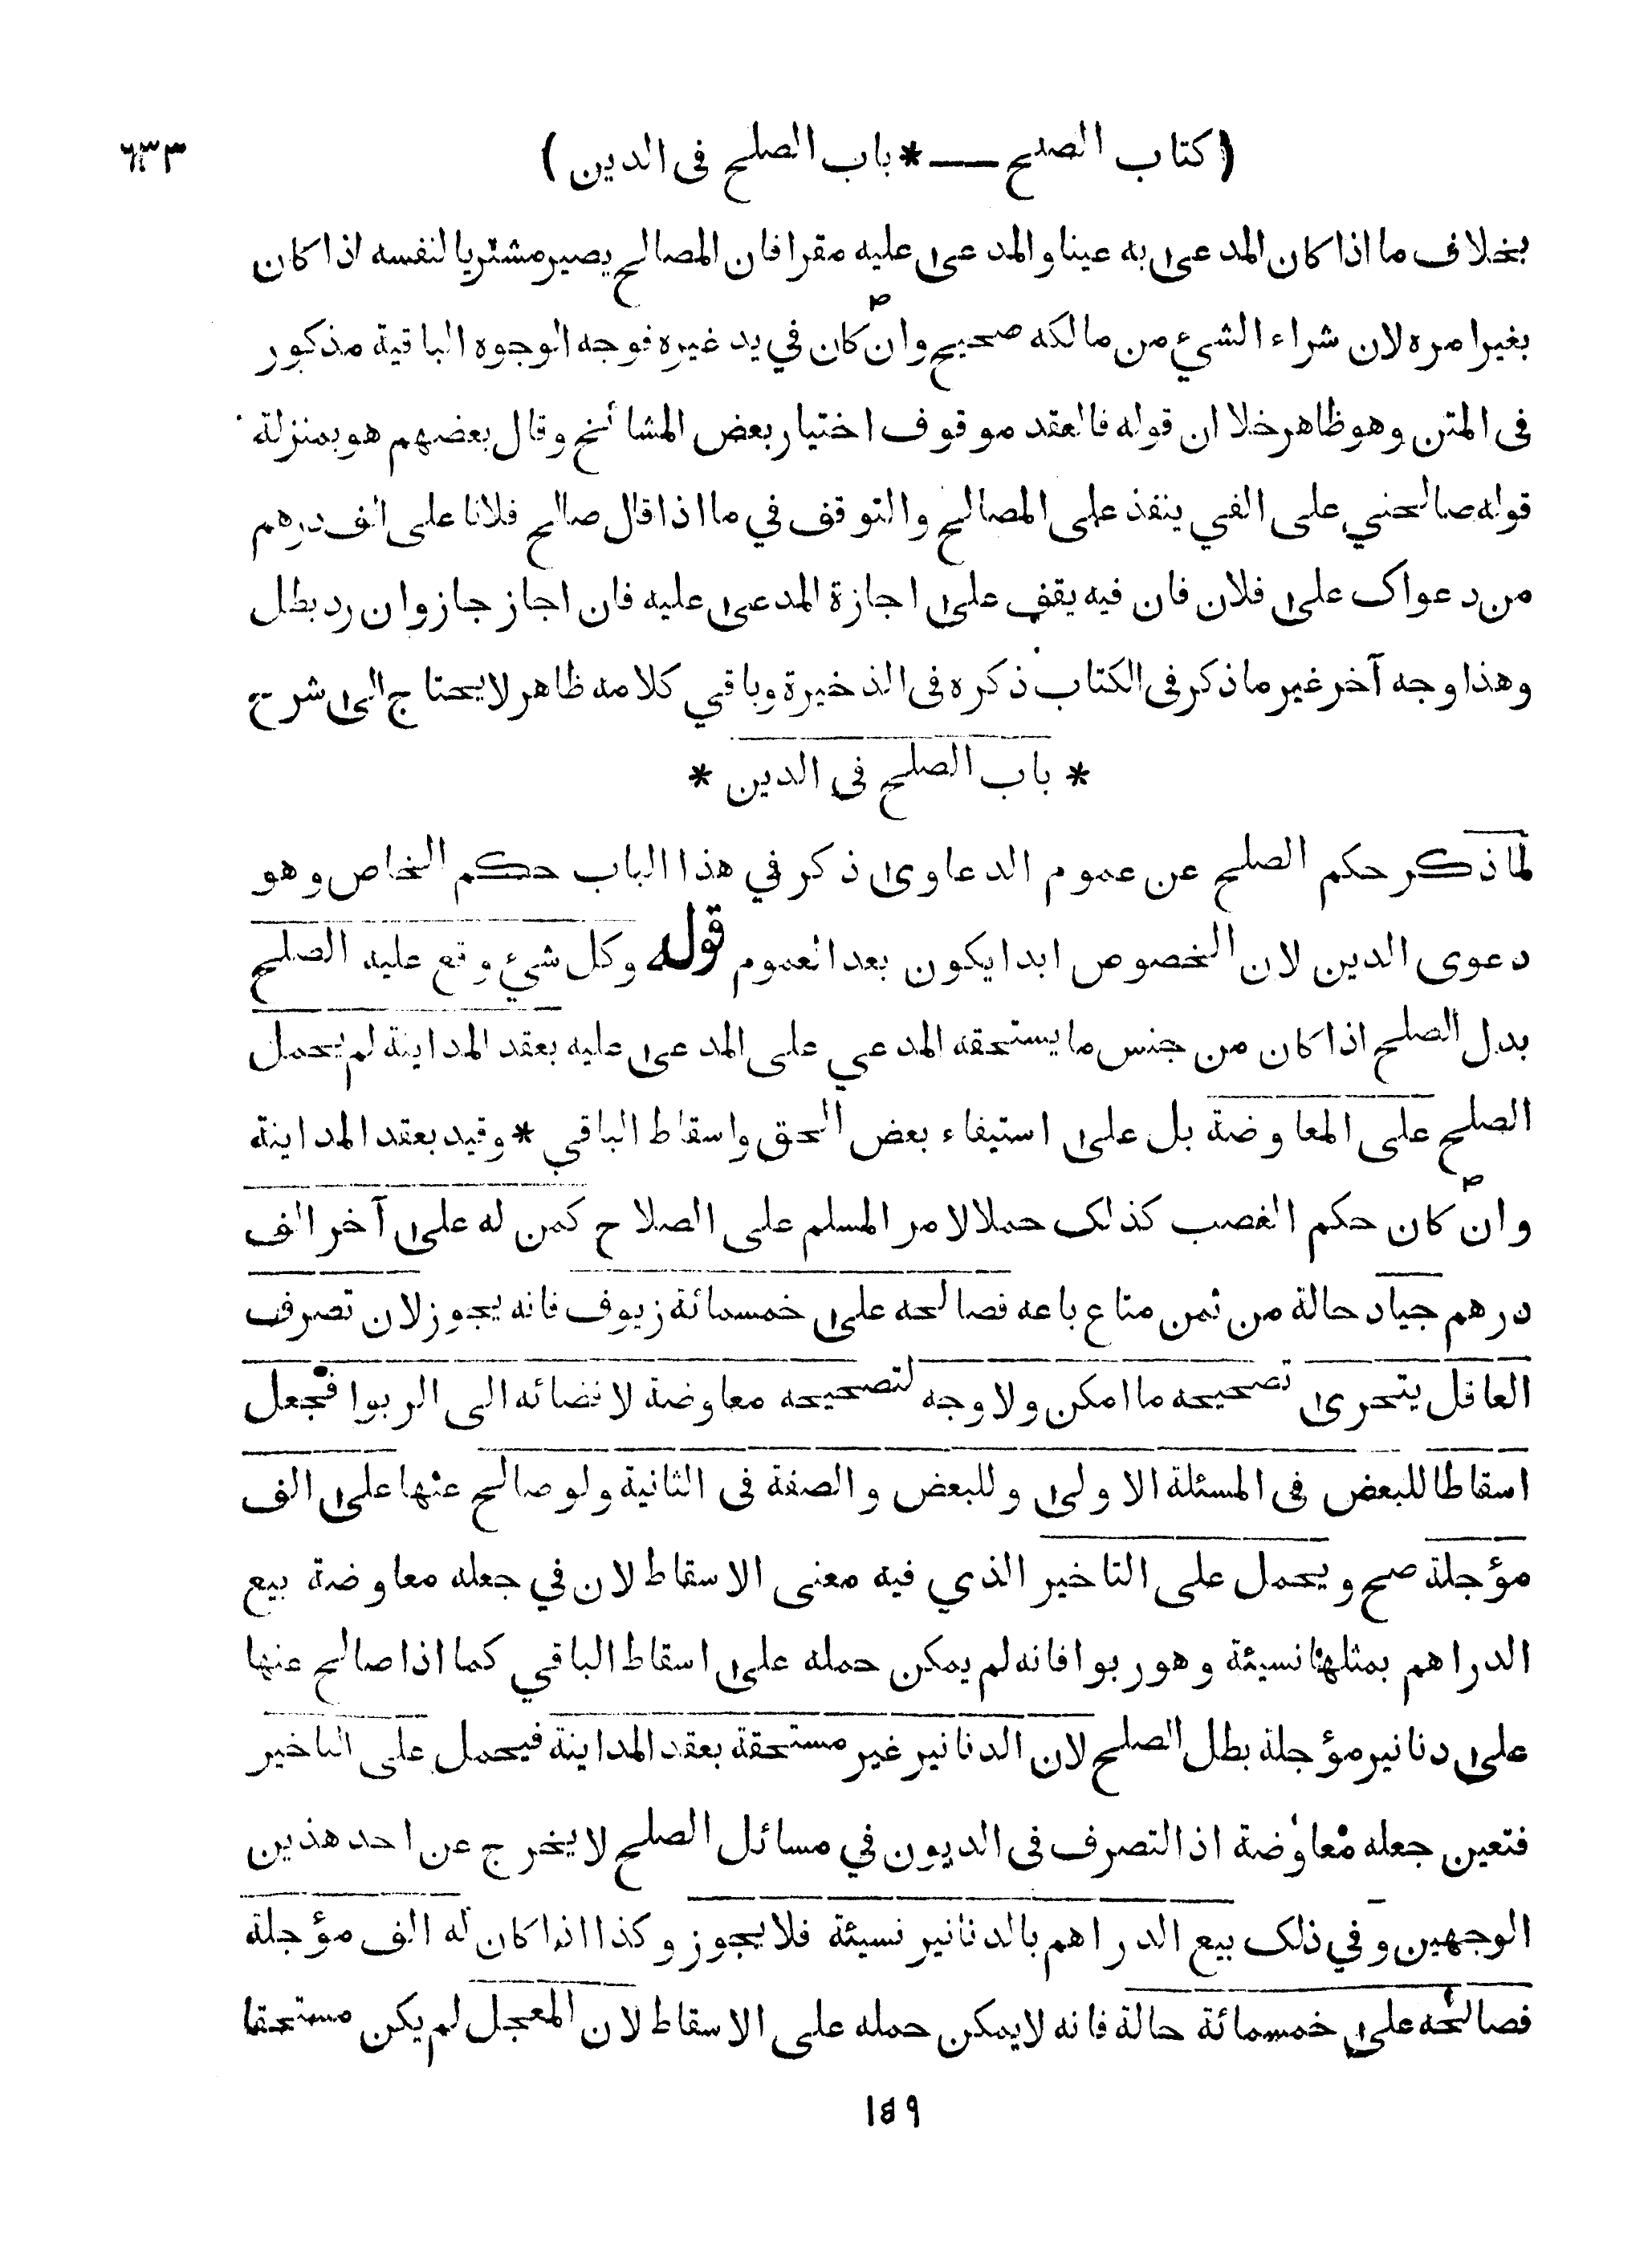 ( كتاب الصلح — * باب الصلح فى الدين ) ٦٣٣
بخلاف ما اذا كان المدعى به عينا والمدعى عليه مقرا فان المصالح يصير مشتريا لنفسه اذا كان
بغير امره لان شراء الشيء من مالكه صحيح وان كان في يد غيره فوجه الوجوه الباقية مذكور
فى المتن وهو ظاهر خلا ان قوله فالعقد موقوف اختيار بعض المشائخ وقال بعضهم هو بمنزلة
قوله صالحني على الفي ينفذ على المصالح والتوقف في ما اذا قال صالح فلانا على الف درهم
من دعواك على فلان فان فيه يقف على اجازة المدعى عليه فان اجاز جاز وان رد بطل
وهذا وجه آخر غير ما ذكر فى الكتاب ذكره فى الذخيرة وباقي كلامه ظاهر لا يحتاج الى شرح
* باب الصلح فى الدين *
لما ذكر حكم الصلح عن عموم الدعاوى ذكر في هذا الباب حكم الخاص وهو
دعوى الدين لان الخصوص ابدا يكون بعد العموم قوله وكل شيء وقع عليه الصلح
بدل الصلح اذا كان من جنس ما يستحقه المدعي على المدعى عليه بعقد المداينة لم يحمل
الصلح على المعاوضة بل على استيفاء بعض الحق واسقاط الباقي * وقيد بعقد المداينة
وان كان حكم الغصب كذلك حملا لامر المسلم على الصلاح كمن له على آخر الف
درهم جياد حالة من ثمن متاع باعه فصالحه على خمسمائة زيوف فانه يجوز لان تصرف
العاقل يتحرى تصحيحه ما امكن ولا وجه لتصحيحه معاوضة لافضائه الى الربوا فجعل
اسقاطا للبعض فى المسئلة الاولى وللبعض والصفة فى الثانية ولو صالح عنها على الف
مؤجلة صح ويحمل على التاخير الذي فيه معنى الاسقاط لان في جعله معاوضة بيع
الدراهم بمثلها نسيئة وهو ربوا فانه لم يمكن حمله على اسقاط الباقي كما اذا صالح عنها
على دنانير مؤجلة بطل الصلح لان الدنانير غير مستحقة بعقد المداينة فيحمل على التاخير
فتعين جعله معاوضة اذ التصرف فى الديون في مسائل الصلح لا يخرج عن احد هذين
الوجهين وفي ذلك بيع الدراهم بالدنانير نسيئة فلا يجوز وكذا اذا كان له الف مؤجلة
فصالحه على خمسمائة حالة فانه لا يمكن حمله على الاسقاط لان المعجل لم يكن مستحقا
١٥٩